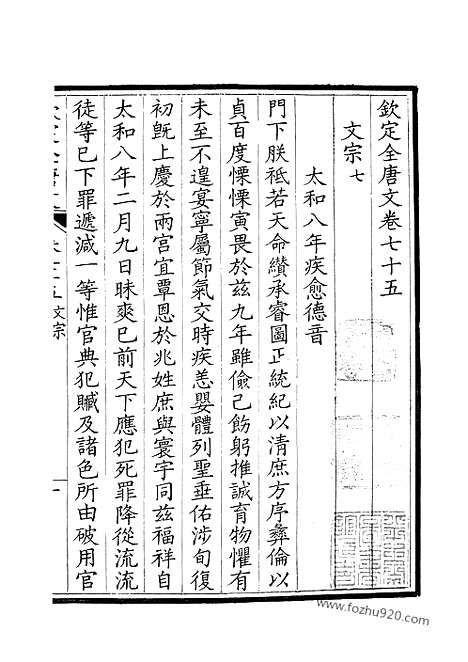 欽定全唐文卷七十五
文宗七
太和八年疾愈德音
門下朕祗若天命纘承睿圖正統紀以清庶方序彝倫以
貞百度慄慄寅畏於茲九年雖儉已飭躬推誠育物懼有
未至不遑宴寧屬節氣交時疾恙嬰體列聖垂佑涉旬復
初旣上慶於兩宮宜覃恩於兆姓庶與寰宇同茲福祥自
太和八年二月九日昧爽已前天下應犯死罪降從流流
徒等已下罪遞減一等惟官典犯贓及諸色所由破用官
文宗
一
www.fozhu920.com